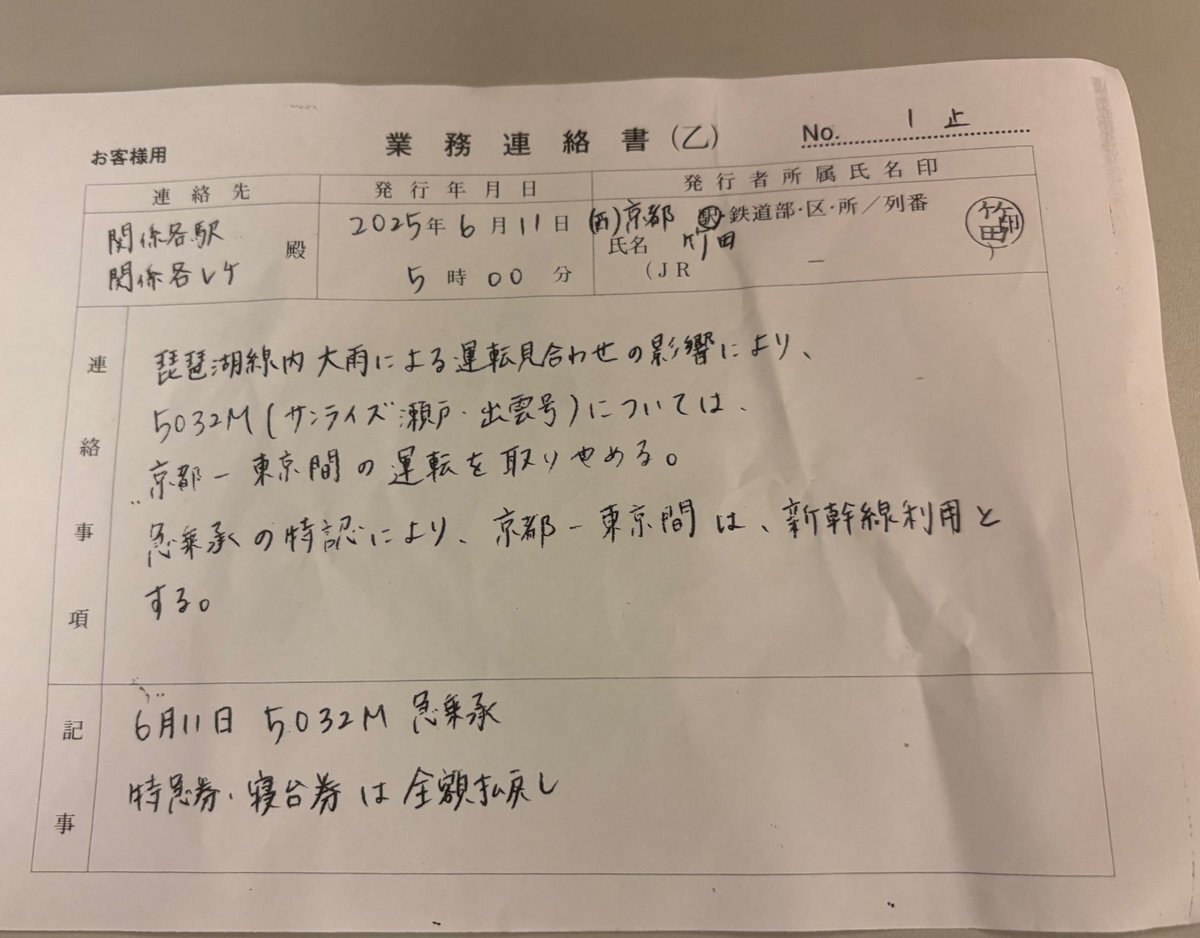 お客様用
業務連絡書(乙)
No. 1 上
連絡先
発行年月日
発行者所属氏名印
関係各駅
関係各レケ
殿
2025年6月11日
5時00分
(西)京都 駅・鉄道部・区・所/列番
氏名 竹田
(JR
竹田
印
連絡事項
琵琶湖線内大雨による運転見合わせの影響により、
5032M(サンライズ瀬戸・出雲号)については、
京都-東京間の運転を取りやめる。
急乗承の特認により、京都-東京間は、新幹線利用と
する。
記事
6月11日 5032M 急乗承
特急券・寝台券は全額払戻し